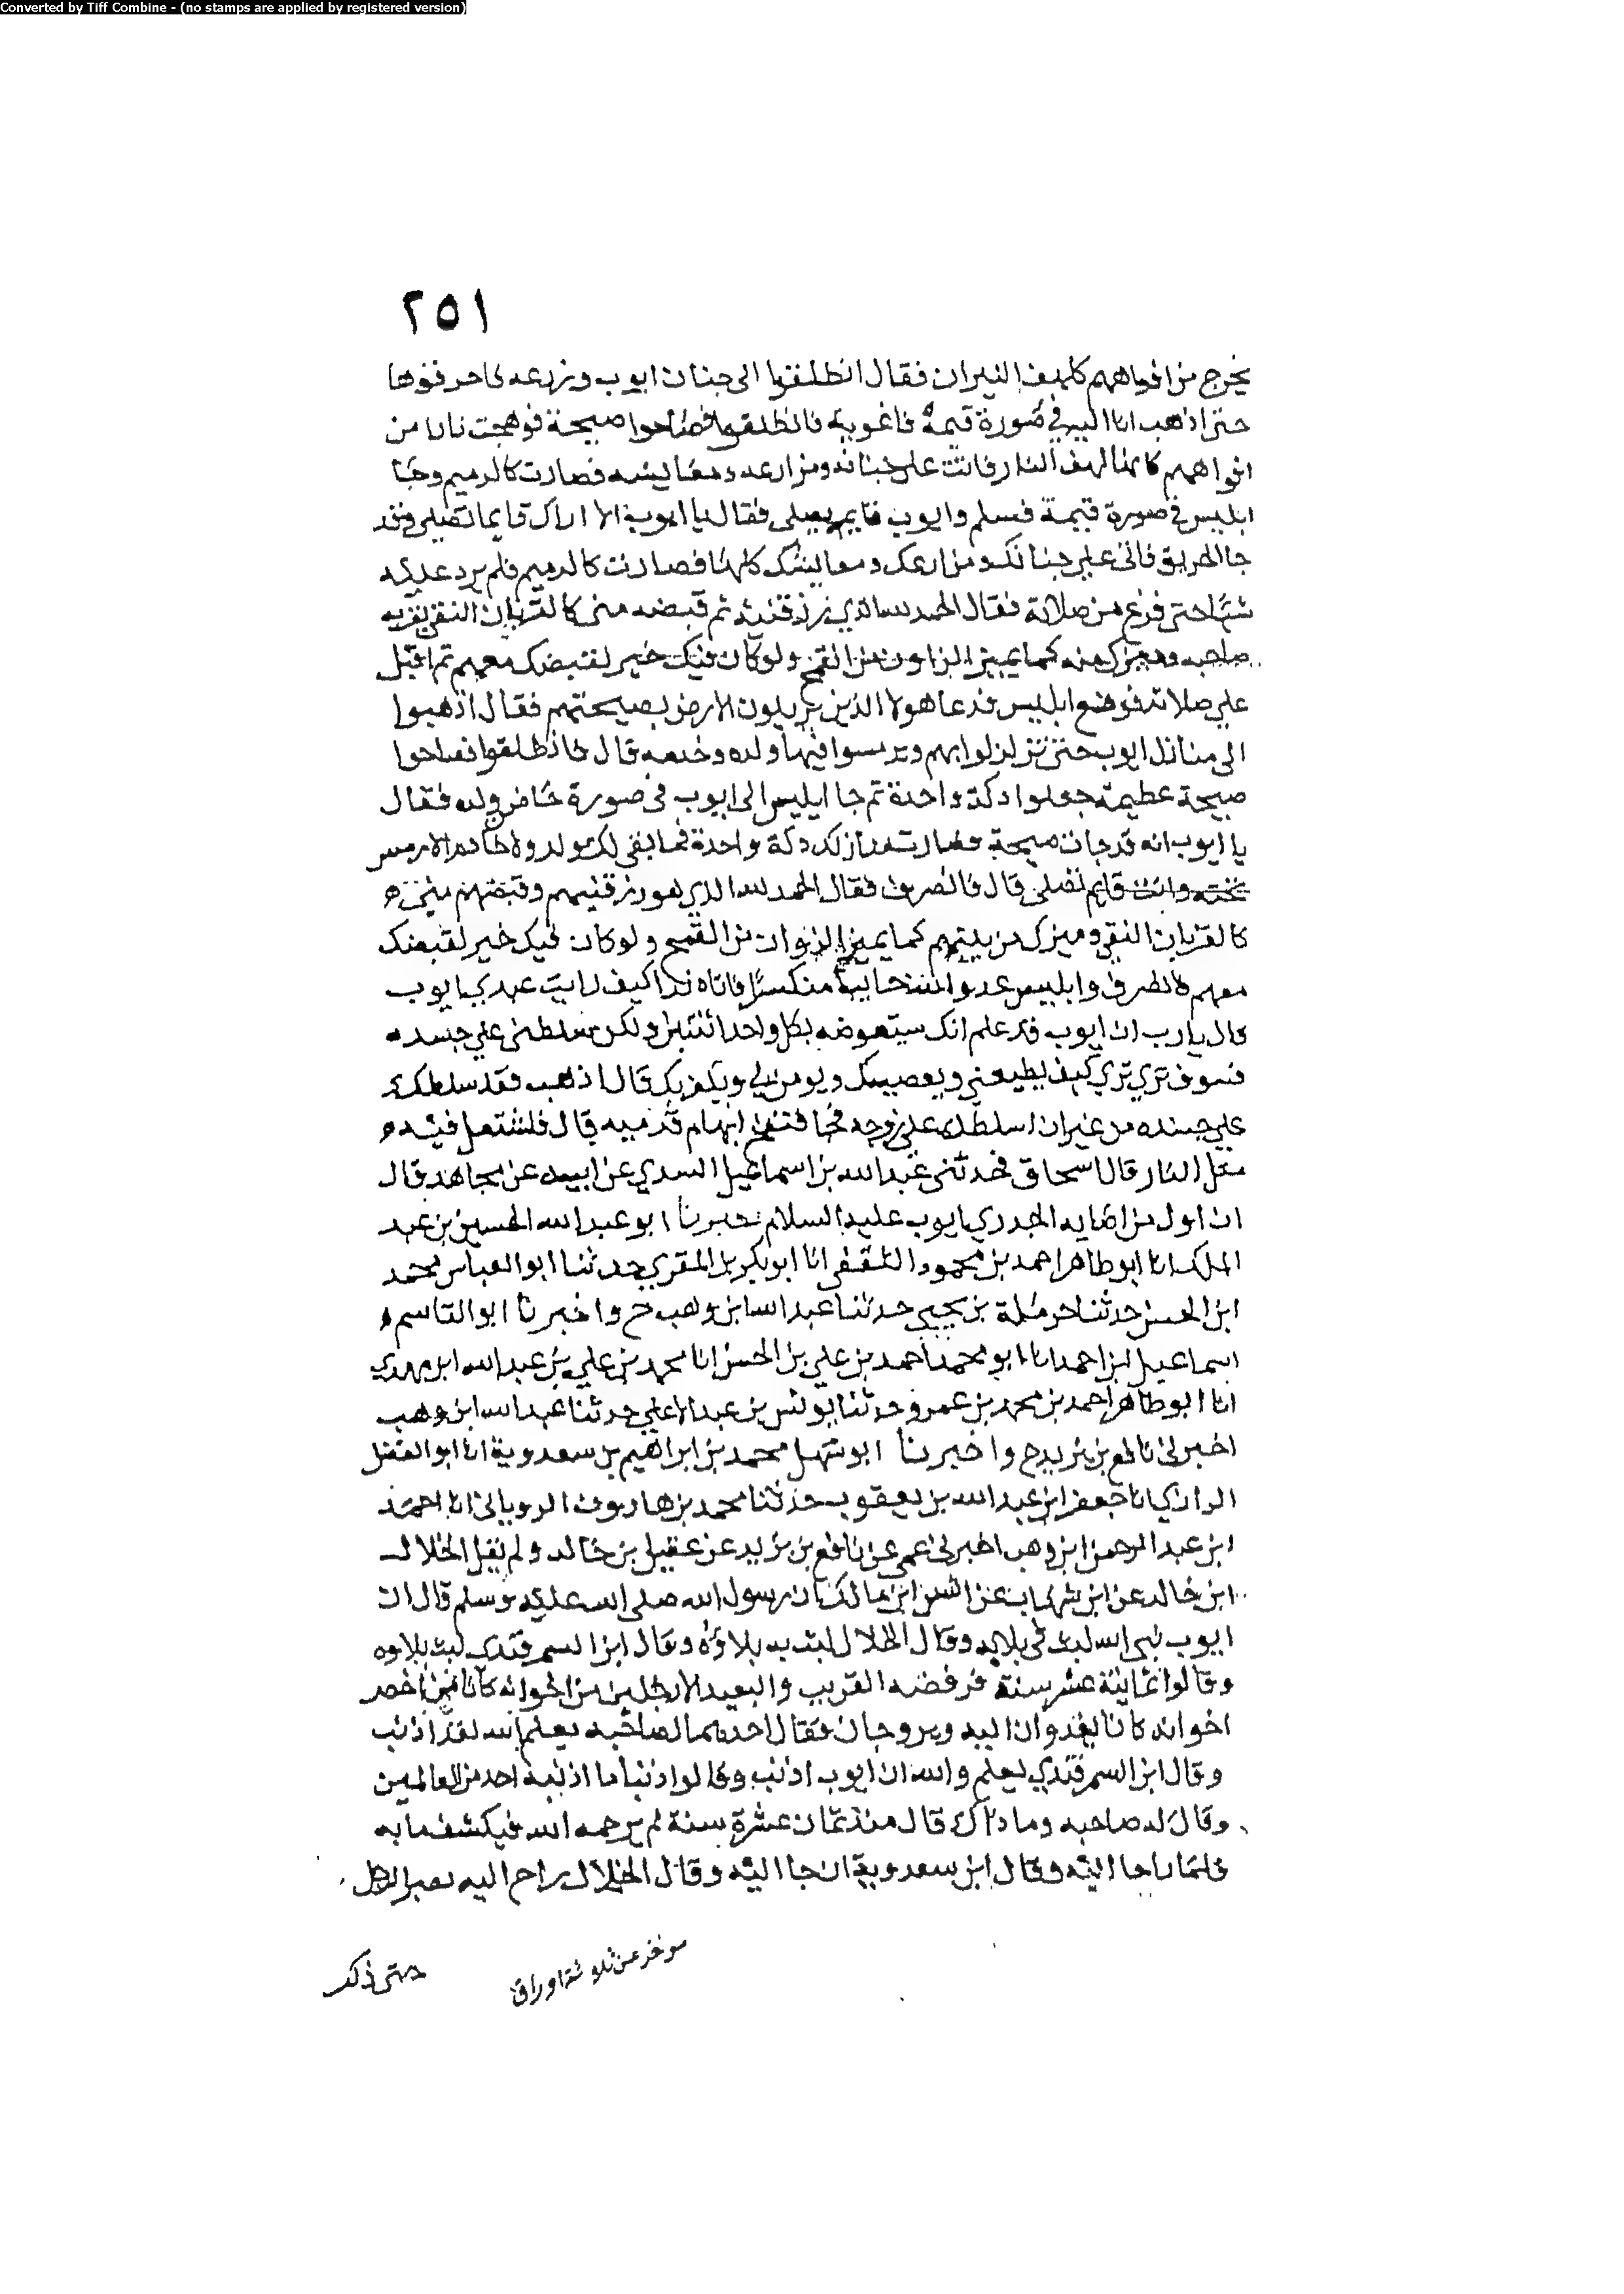 Converted by Tiff Combine - (no stamps are applied by registered version)
٢٥١
يخرج من افواههم كلهف النيران فقال انطلقوا الى جنان ايوب وزرعه فاحرقوها
حتى اذهب انا اليه في صورة قيمه فاغويه فانطلقوا فصاحوا صيحة فوهجت نارا من
افواههم كانها لهف النار فاتت على جنانه ومزارعه ومعايشه فصارت كالرميم وجا
ابليس في صورة قيمة فسلم وايوب قايم يصلي فقال يا ايوب الا اراك قايما تصلي وقد
جا الحريق فاتى على جنانك ومزارعك ومعايشك كلها فصارت كالرميم فلم يرد عليه
شيا حتى فرغ من صلاته فقال الحمد لله الذي رزقنيه ثم قبضه مني كالقربان النقي يقربه
صاحبه وميزك منه كما يميز الزاون من القمح ولو كان فيك خير لقبضك معهم ثم اقبل
على صلاته فوضع ابليس فدعا هولا الذين يزيلون الارض بصيحتهم فقال اذهبوا
الى منازل ايوب حتى تزلزلوا بهم فيها ولده وخدمه قال فانطلقوا فصاحوا
صيحة عظيمة جعلوا دكة واحدة ثم جا ابليس الى ايوب في صورة حاضن ولده فقال
يا ايوب انه قد جات صيحة فصارت منازلك دكة واحدة فما بقي لك ولد ولا خادم الا رمس
تحته وانت قايم تصلي قال فانصرف فقال الحمد لله الذي هو رزقنيهم وقبضهم مني
كالقربان النقي وميزك من بينهم كما يميز الزوان من القمح ولو كان فيك خير لقبضك
معهم فانصرف وابليس عدو الله خايبا منكسرا فاتاه ندا كيف رايت عبدي ايوب
قال يا رب ان ايوب قد علم انك ستعوضه بكل واحد اثنين ولكن سلطني على جسده
فسوف ترى ترى كيف يطيعني ويعصيك ويومن بي ويكفر بك قال اذهب فقد سلطتك
على جسده من غير ان اسلطك على زوجه فجا فنفخ ابهام قدميه قال فاشتعل فيه
مثل النار قال اسحاق فحدثني عبد الله بن اسماعيل السدي عن ابيه عن مجاهد قال
ان اول من اصابه الجدري ايوب عليه السلام اخبرنا ابو عبد الله الحسين بن عبد
الملك انا ابو طاهر احمد بن محمود الثقفي انا ابو بكر بن المقري حدثنا ابو العباس محمد
ابن الحسن حدثنا حرملة بن يحيى حدثنا عبد الله ابن وهب ح واخبرنا ابو القاسم
اسماعيل بن احمد انا ابو محمد احمد بن علي بن الحسن انا محمد بن علي بن عبد الله ابن مهدي
انا ابو طاهر احمد بن محمد بن عمرو حدثنا يونس بن عبد الاعلى حدثنا عبد الله ابن وهب
اخبرني نافع بن يزيد ح واخبرنا ابو سهل محمد بن ابراهيم بن سعدوية انا ابو الفضل
الرازي انا جعفر ابن عبد الله بن يعقوب حدثنا محمد بن هارون الروياني انا احمد
ابن عبد الرحمن ابن وهب اخبرني عمي عن نافع بن يزيد عن عقيل بن خالد ولم يقل الخلال
ابن خالد عن ابن شهاب عن انس ابن مالك ان رسول الله صلى الله عليه وسلم قال ان
ايوب نبي الله لبث في بلايه وقال الخلال لبث به بلاؤه وقال ابن السمرقندي لبث بلاوه
وقالوا ثمانية عشر سنة فرفضه القريب والبعيد الا رجلين من اخوانه كانا من اخص
اخوانه كانا يغدوان اليه ويروحان فقال احدهما لصاحبه يعلم الله لقد اذنب
وقال ابن السمرقندي يعلم والله ان ايوب اذنب وقالوا ذنبا ما اذنبه احد من العالمين
وقال له صاحبه وما ذاك قال منذ ثمان عشرة سنة لم يرحمه الله فيكشف ما به
فلما راحا اليه وقال ابن سعدوية ان جا اليه وقال الخلال راح اليه يصبر الرجل
موخر عن ثلاثة اوراق
حتى ذكر